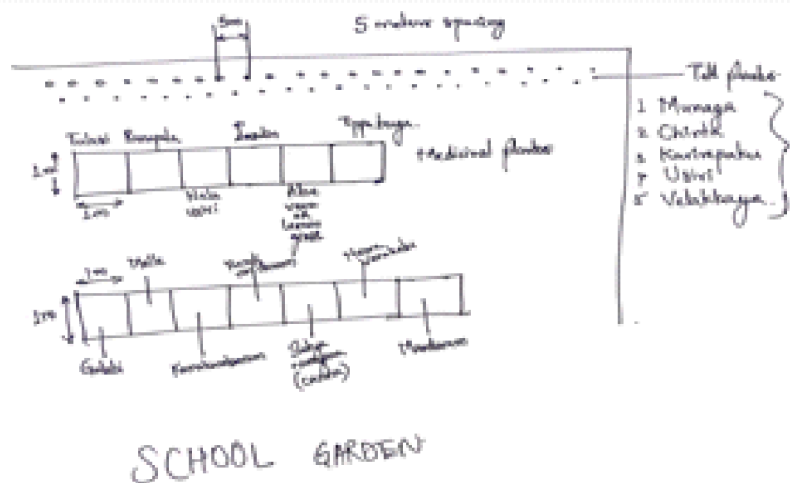 5m
5 meture spacing
Tall plants
1 Munaga
2 Chinta
3 Karivepaku
4 Usiri
5 Velakkaya
Tulasi
Tippateega
Medicinal plants
1m
1m
Nela usiri
Aloe vera or lemon grass
1m
Malle
1m
Gulabi
Kanakambaram
(cactus)
Mandaram
SCHOOL GARDEN